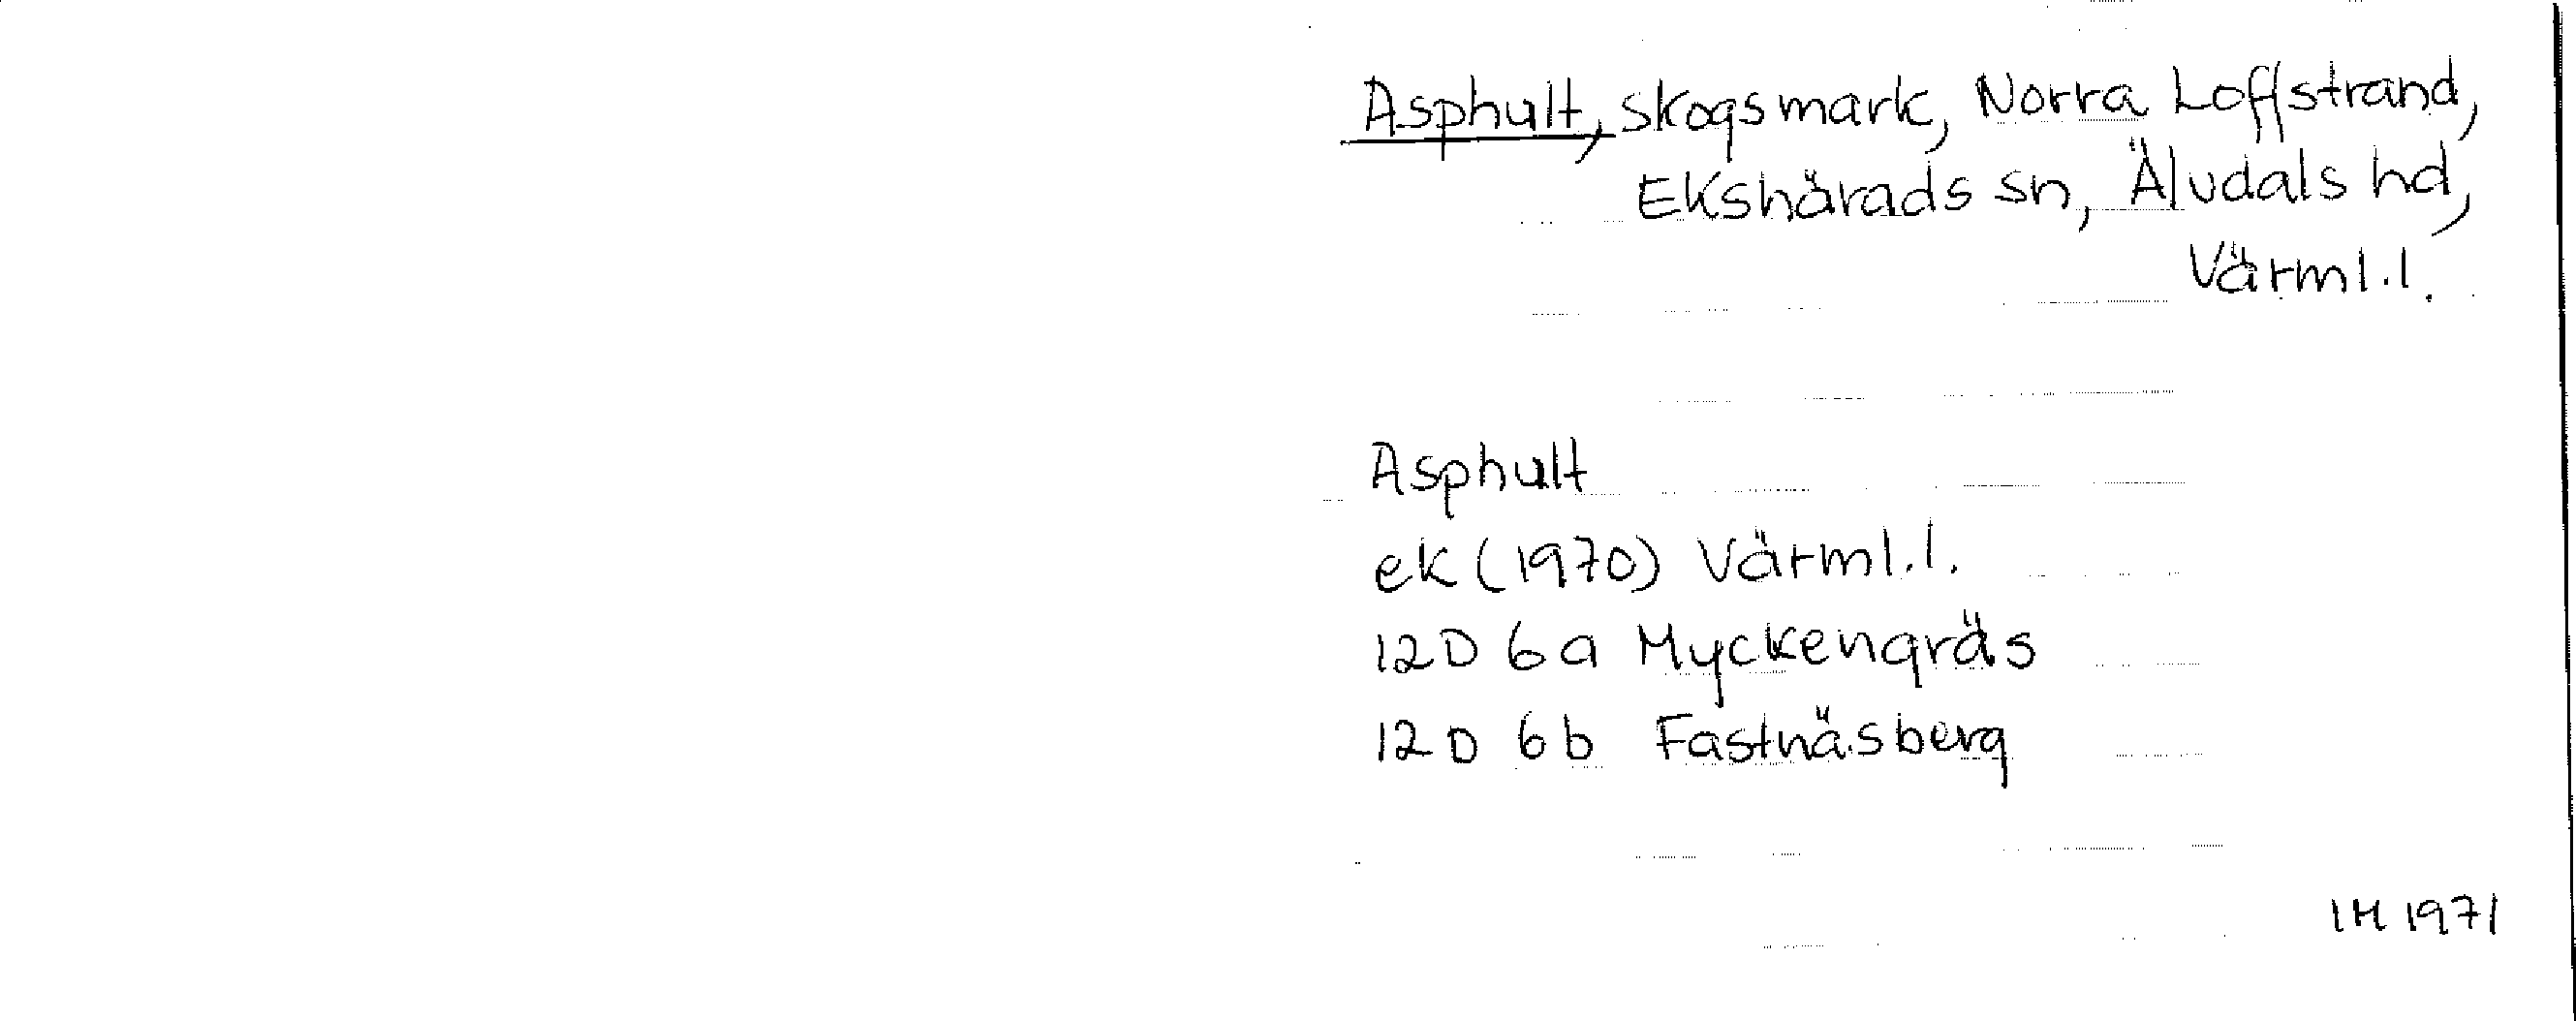 Asphult, skogsmark, Norra Loffstrand,
Ekshärads sn, Älvdals hd,
Värml.l.
Asphult
ek (1970) Värml.l.
12D 6a Myckengräs
12D 6b Fastnäsberg
IM 1971